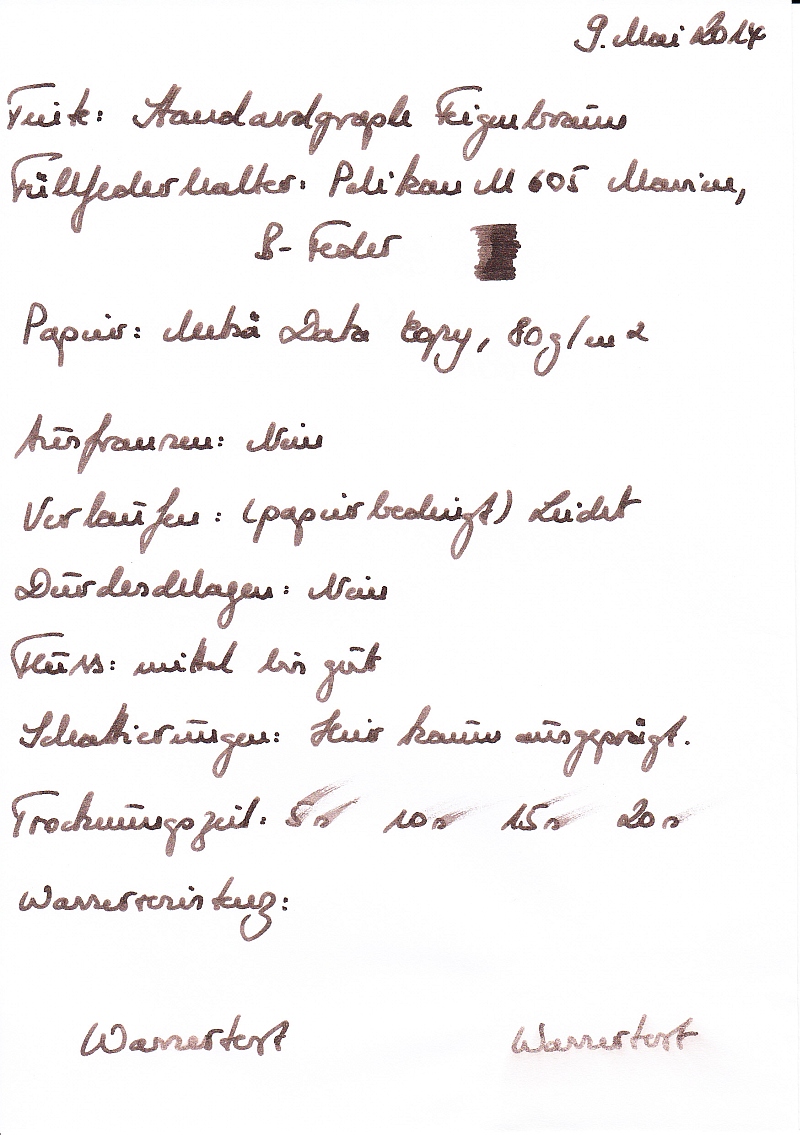 9. Mai 2014
Tinte: Standardgraph Feigenbraun
Füllfederhalter: Pelikan M 605 Marine,
B-Feder
Papier: Data Copy, 80g/m²
Ausfransen: Nein
Verlaufen: (papierbedingt) Leicht
Durchschlagen: Nein
Fluss: mittel bis gut
Schattierungen: Hier kaum ausgeprägt.
Trocknungszeit: 5s 10s 15s 20s
Wasserresistenz:
Wassertest Wassertest